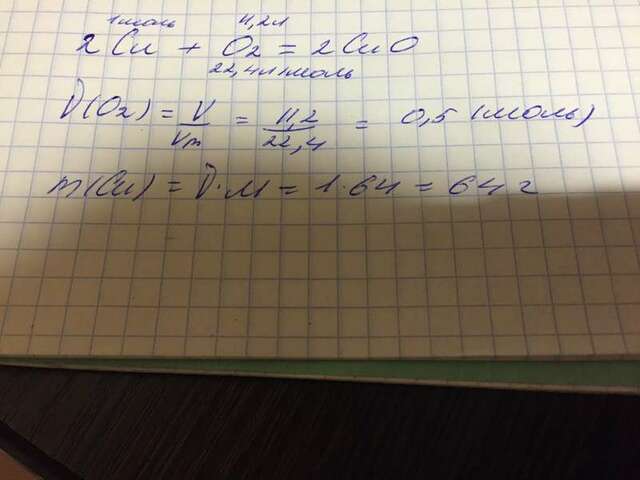 1моль 11,2л
2Cu + O₂ = 2CuO
22,4л/моль
ν(O₂) = V/Vm = 11,2/22,4 = 0,5 (моль)
m(Cu) = ν·M = 1·64 = 64 г